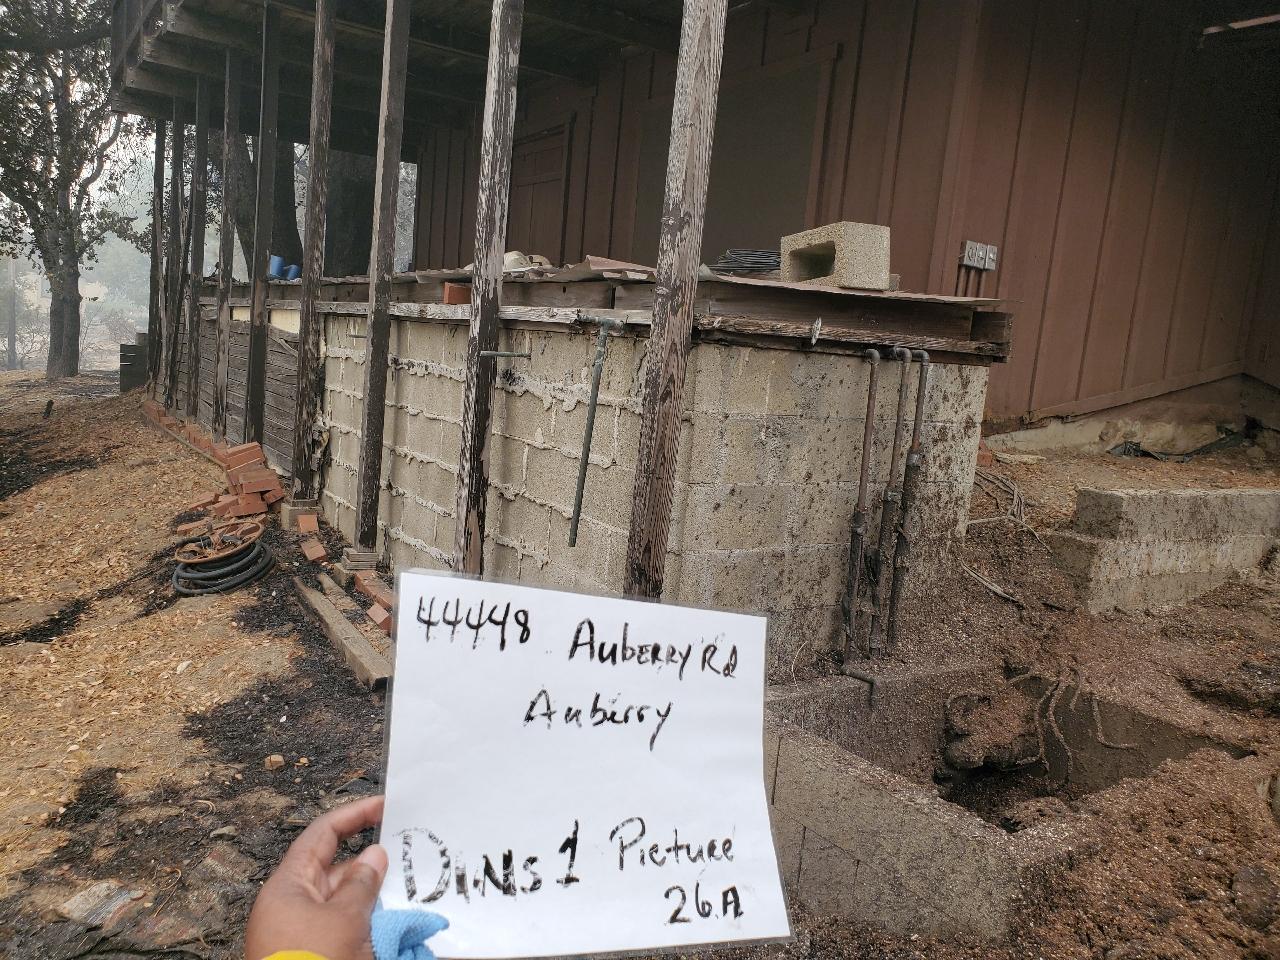 44448 Auberry Rd
Auberry
DINS 1 Picture
26A